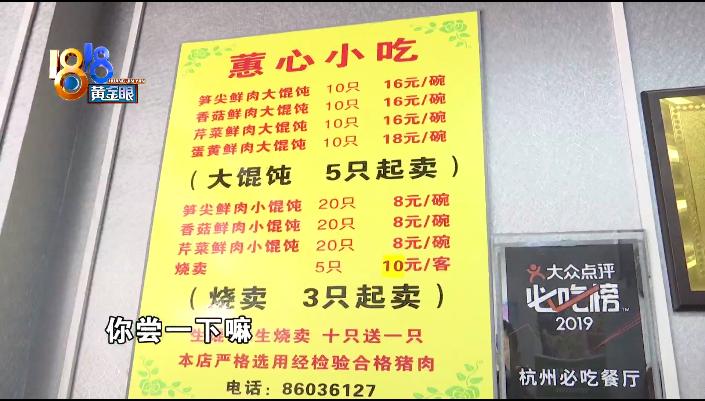 1818
HUANGJINYAN
黄金眼
蕙心小吃
笋尖鲜肉大馄饨 10只 16元/碗
香菇鲜肉大馄饨 10只 16元/碗
芹菜鲜肉大馄饨 10只 16元/碗
蛋黄鲜肉大馄饨 10只 18元/碗
(大馄饨 5只起卖)
笋尖鲜肉小馄饨 20只 8元/碗
香菇鲜肉小馄饨 20只 8元/碗
芹菜鲜肉小馄饨 20只 8元/碗
烧卖 5只 10元/客
(烧卖 3只起卖)
生 生烧卖 十只送一只
本店严格选用经检验合格猪肉
电话:86036127
你尝一下嘛
大众点评
必吃榜
2019
杭州必吃餐厅